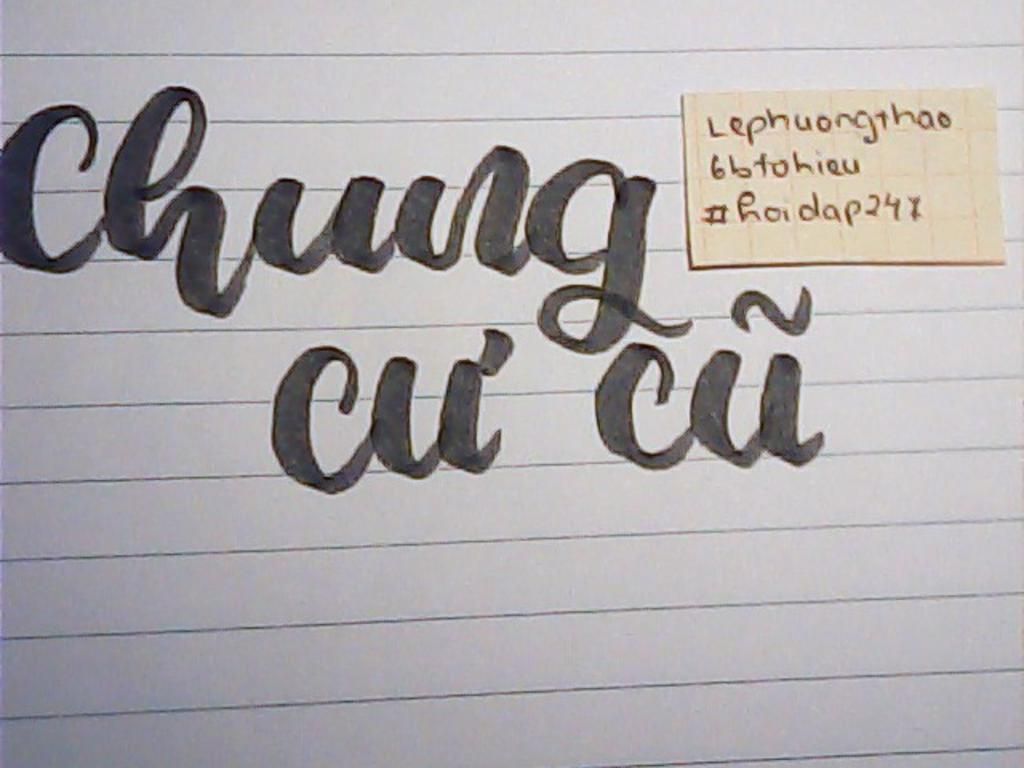 Chung
cư cũ
Lephuongthao
6btohieu
#hoidap247